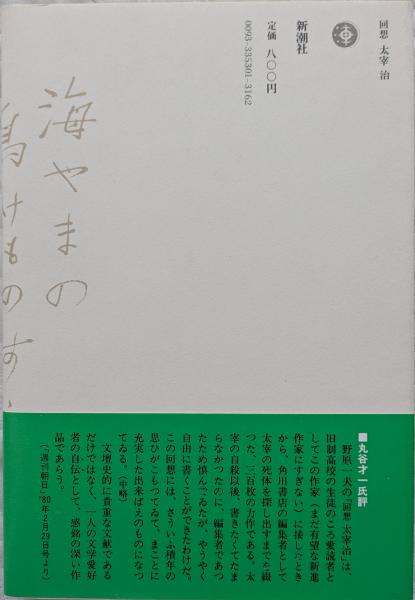 回想 太宰 治
新潮社
定価 八〇〇円
0093-335301-3162
海やまの
鳥けものす
■丸谷才一氏評
野原一夫の『回想 太宰治』は、
旧制高校の生徒のころ愛読者と
してこの作家(まだ有望な新進
作家にすぎない)に接したとき
から、角川書店の編集者として
太宰の死体を探し出すまでを綴
つた、三百枚の力作である。太
宰の自殺以後、書きたくてたま
らなかつたのに、編集者であつ
たため慎んでゐたが、やうやく
自由に書くことができたわけだ。
この回想には、さういふ積年の
思ひがこもつてゐて、まことに
充実した出来ばえのものになつ
てゐる。(中略)
文壇史的に貴重な文献である
だけではなく、一人の文学愛好
者の自伝として、感銘の深い作
品であらう。
(「週刊朝日」'80年2月29日号より)